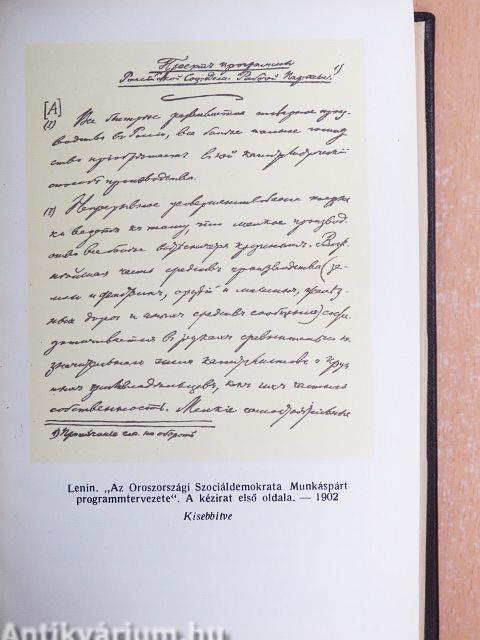 Проектъ программы
Россійской Соц.-дем. Рабочей Партіи. 1)
[A]
(I) Все быстрѣе развивается товарное произ-
водство въ Россіи, все болѣе полное господ-
ство пріобрѣтаетъ въ ней капиталистическій
способъ производства.
(2) Непрерывное усовершенствованіе техни-
ки ведетъ къ тому, что мелкое производ-
ство все болѣе вытѣсняется крупнымъ. Важ-
нѣйшая часть средствъ производства (зе-
мли и фабрикъ, орудій и машинъ, желѣз-
ныхъ дорогъ и иныхъ средствъ сообщенія) сосре-
доточивается въ рукахъ сравнительно не-
значительнаго числа капиталистовъ и круп-
ныхъ землевладѣльцевъ, какъ ихъ частная
собственность. Мелкіе самостоятельные
1) Примѣчаніе см. на оборотѣ
Lenin. „Az Oroszországi Szociáldemokrata Munkáspárt
programmtervezete“. A kézirat első oldala. — 1902
Kisebbítve
Antikvárium.hu